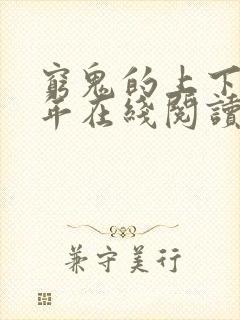 窮鬼的上下
年在綫閱讀
兼守美行